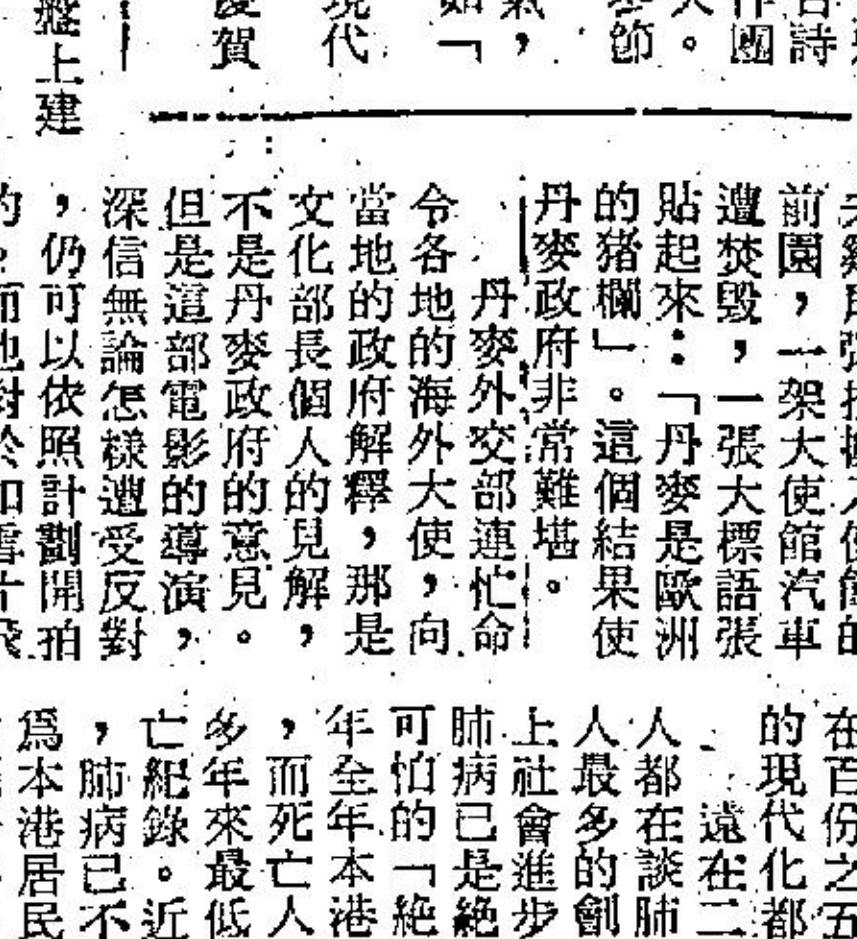 古詩
作團
大。
節
氣,
如「
現代
慶賀
盤上建
前園,一架大使館汽車
遭焚毀,一張大標語張
貼起來:「丹麥是歐洲
的猪欄」。這個結果使
丹麥政府非常難堪。
丹麥外交部連忙命
令各地的海外大使,向
當地的政府解釋,那是
文化部長個人的見解,
不是丹麥政府的意見。
但是這部電影的導演,
深信無論怎樣遭受反對
,仍可以依照計劃開拍
的。而他對於如雪片飛
在百份之五
的現代化都
遠在二
人都在談肺
人最多的劊
上社會進步
肺病已是絶
可怕的「絶
年全年本港
,而死亡人
多年來最低
亡紀錄。近
,肺病已不
爲本港居民